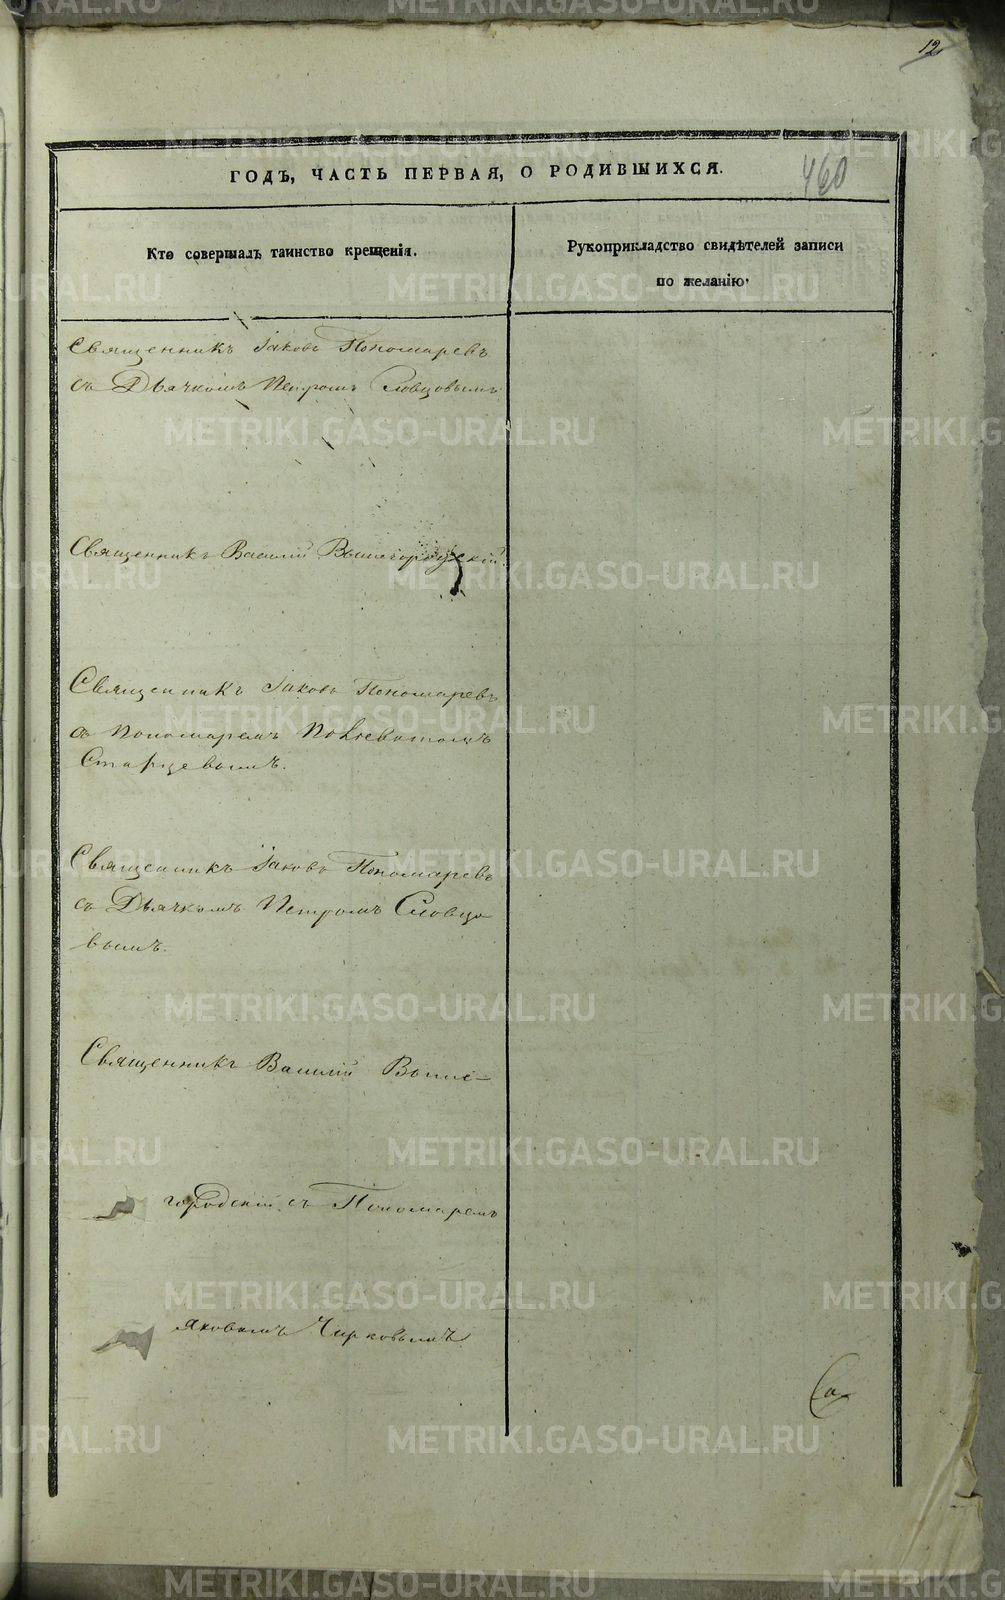 12
460
ГОДЪ, ЧАСТЬ ПЕРВАЯ, О РОДИВШИХСЯ.
Кто совершалъ таинство крещенія.
Рукоприкладство свидѣтелей записи
по желанію.
Священникъ Іаковъ Пономаревъ
съ Дьячкомъ Петромъ Словцовымъ
Священникъ Василій Вышегородскій.
Священникъ Іаковъ Пономаревъ
съ Пономаремъ
Старцевымъ.
Священникъ Іаковъ Пономаревъ
съ Дьячкомъ Петромъ Словцо-
вымъ.
Священникъ Василій Выше-
городскій съ Пономаремъ
Яковомъ Чирковымъ
METRIKI.GASO-URAL.RU